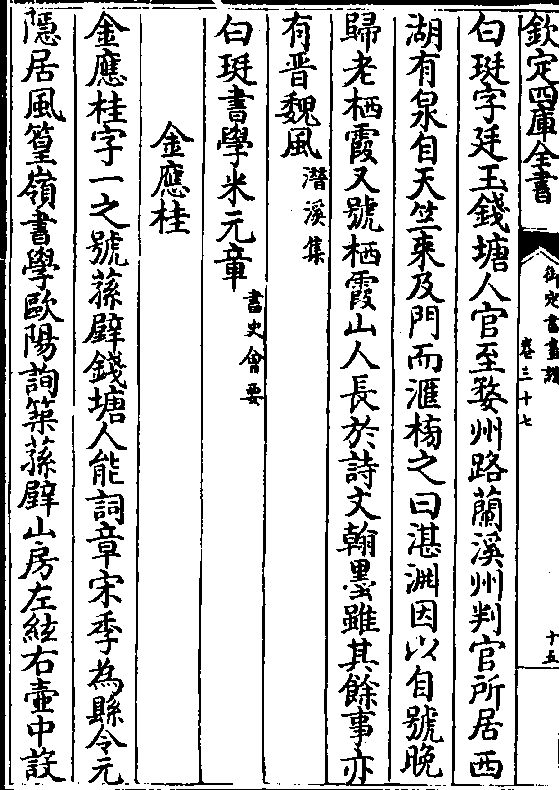 欽定四庫全書
御定書畫譜
卷三十七
十五
白珽字廷玉錢塘人官至婺州路蘭溪州判官所居西
湖有泉自天竺来及門而滙榜之曰湛渊因以自號晚
歸老栖霞又號栖霞山人長於詩文翰墨雖其餘事亦
有晋魏風潛溪集
白珽書學米元章書史會要
金應桂
金應桂字一之號蓀壁錢塘人能詞章宋季為縣令元
隱居風篁嶺書學歐陽詢築蓀壁山房左絃右壷中設